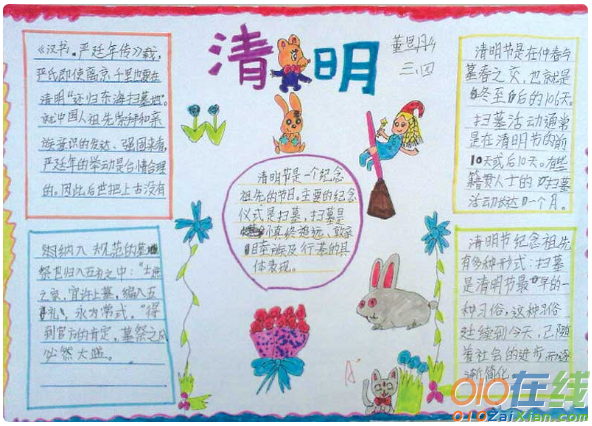 清明
董思丹
三、四
《汉书。严延年传》载，
严氏即使离京千里也要在
清明"还归东海扫墓地"。
就中国人祖先崇拜和亲
族意识的发达、强固来看，
严延年的举动是合情合理
的。因此后世把上古没有
纳入规范的墓
祭也归入五礼之中："士庶
之家，宜许上墓，编入五
礼，永为常式。"得
到官方的肯定，墓祭之风
必然大盛。
清明节是一个纪念
祖先的节日。主要的纪念
仪式是扫墓，扫墓是
慎终追远、敦亲
睦族及行孝的具
体表现。
清明节是在仲春与
暮春之交，也就是
冬至后的106天。
扫墓活动通常
是在清明节的前
10天或后10天。有些
籍贯人士的扫墓
活动长达一个月。
清明节纪念祖先
有多种形式：扫墓
是清明节最早的一
种习俗，这种习俗
延续到今天，已随
着社会的进步而逐
渐简化。
A
010在线
010ZaiXian.com